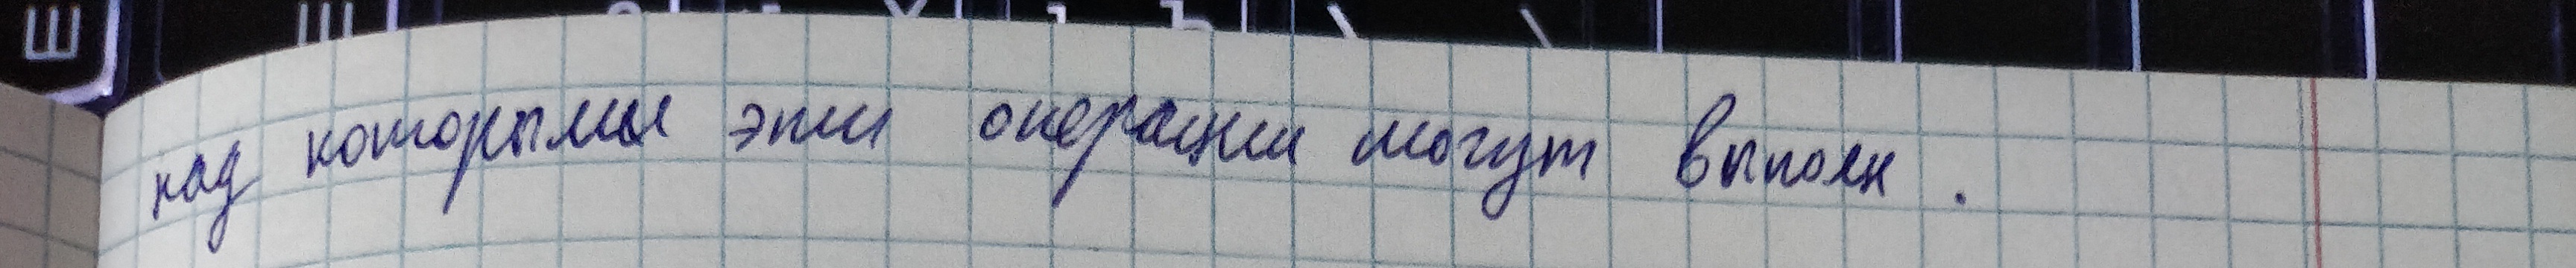 над которыми эти операции могут выполн.